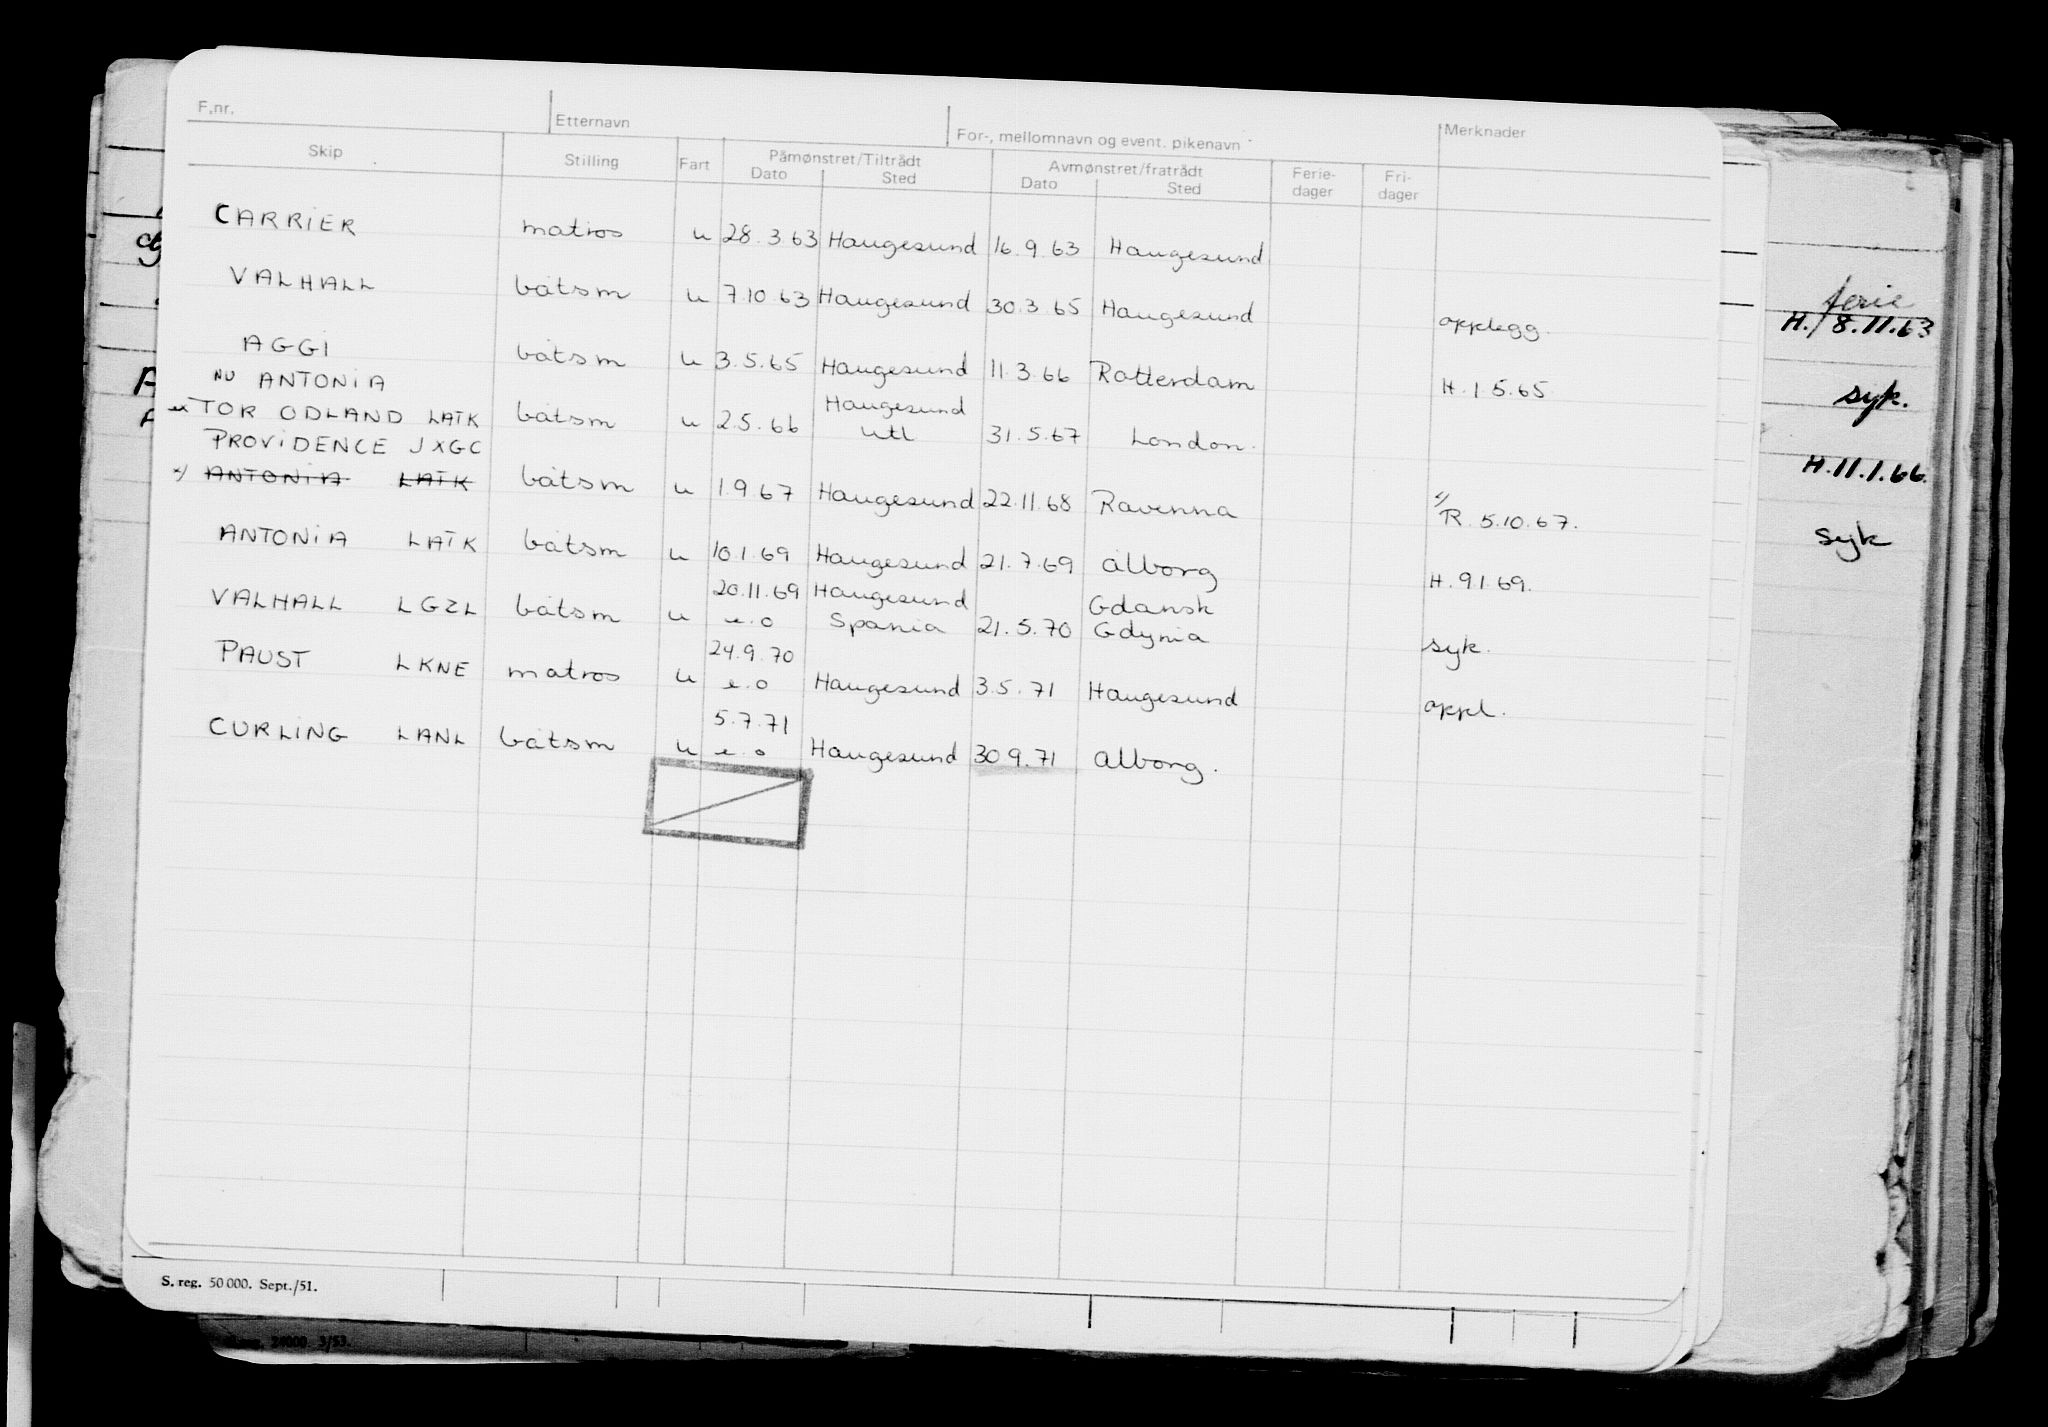 F.nr. Etternavn For-, mellomnavn og event. pikenavn Merknader
Skip Stilling Fart Påmønstret/Tiltrådt Avmønstret/fratrådt Ferie- Fri-
Dato Sted Dato Sted dager dager
CARRIER matros u 28.3.63 Haugesund 16.9.63 Haugesund
VALHALL båtsm u 7.10.63 Haugesund 30.3.65 Haugesund opplegg.
AGGI båtsm u 3.5.65 Haugesund 11.3.66 Rotterdam H.1.5.65.
NU ANTONIA
ex TOR ODLAND LATK båtsm u 2.5.66 Haugesund
utl 31.5.67 London.
PROVIDENCE JXGC
x) ANTONIA LATK båtsm u 1.9.67 Haugesund 22.11.68 Ravenna x) R. 5.10.67.
ANTONIA LATK båtsm u 10.1.69 Haugesund 21.7.69 Ålborg H.9.1.69.
VALHALL LGZL båtsm u 20.11.69 Haugesund Gdansk
e.o Spania 21.5.70 Gdynia syk.
PAUST LKNE matros u 24.9.70
e.o Haugesund 3.5.71 Haugesund oppl.
CURLING LANL båtsm u 5.7.71
e.o Haugesund 30.9.71 Ålborg.
S. reg. 50 000. Sept./51.
24000 3/53.
ferie
H./8.11.63
syk.
H.11.1.66.
syk